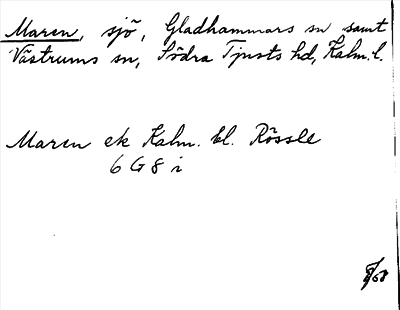 Maren, sjö, Gladhammars sn samt
Västrums sn, Södra Tjusts hd, Kalm. l.
Maren ek Kalm. bl. Rössle
6 G 8 i